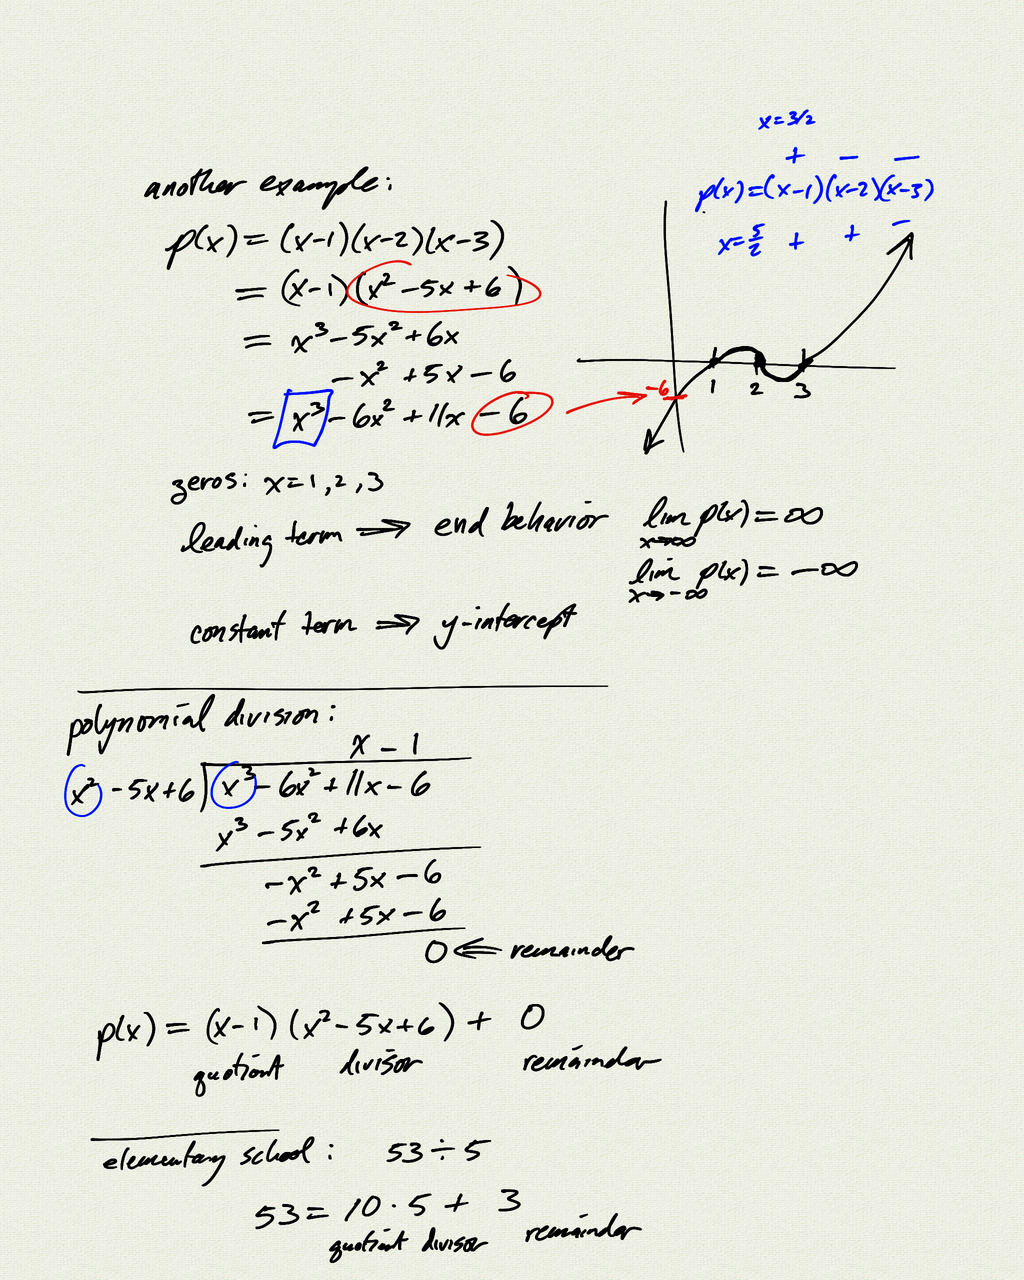 x=3/2
+ − −
p(x)=(x-1)(x-2)(x-3)
x=5/2 + + −
another example:
p(x) = (x-1)(x-2)(x-3)
= (x-1)(x²-5x+6)
= x³-5x²+6x
-x²+5x-6
= x³-6x²+11x-6
-6
1 2 3
zeros: x=1,2,3
leading term ⇒ end behavior lim x→∞ p(x)=∞
lim x→-∞ p(x)=-∞
constant term ⇒ y-intercept
polynomial division:
x - 1
x²-5x+6 ) x³-6x²+11x-6
x³-5x²+6x
-x²+5x-6
-x²+5x-6
0 ⇐ remainder
p(x) = (x-1)(x²-5x+6) + 0
quotient divisor remainder
elementary school: 53÷5
53 = 10·5 + 3
quotient divisor remainder